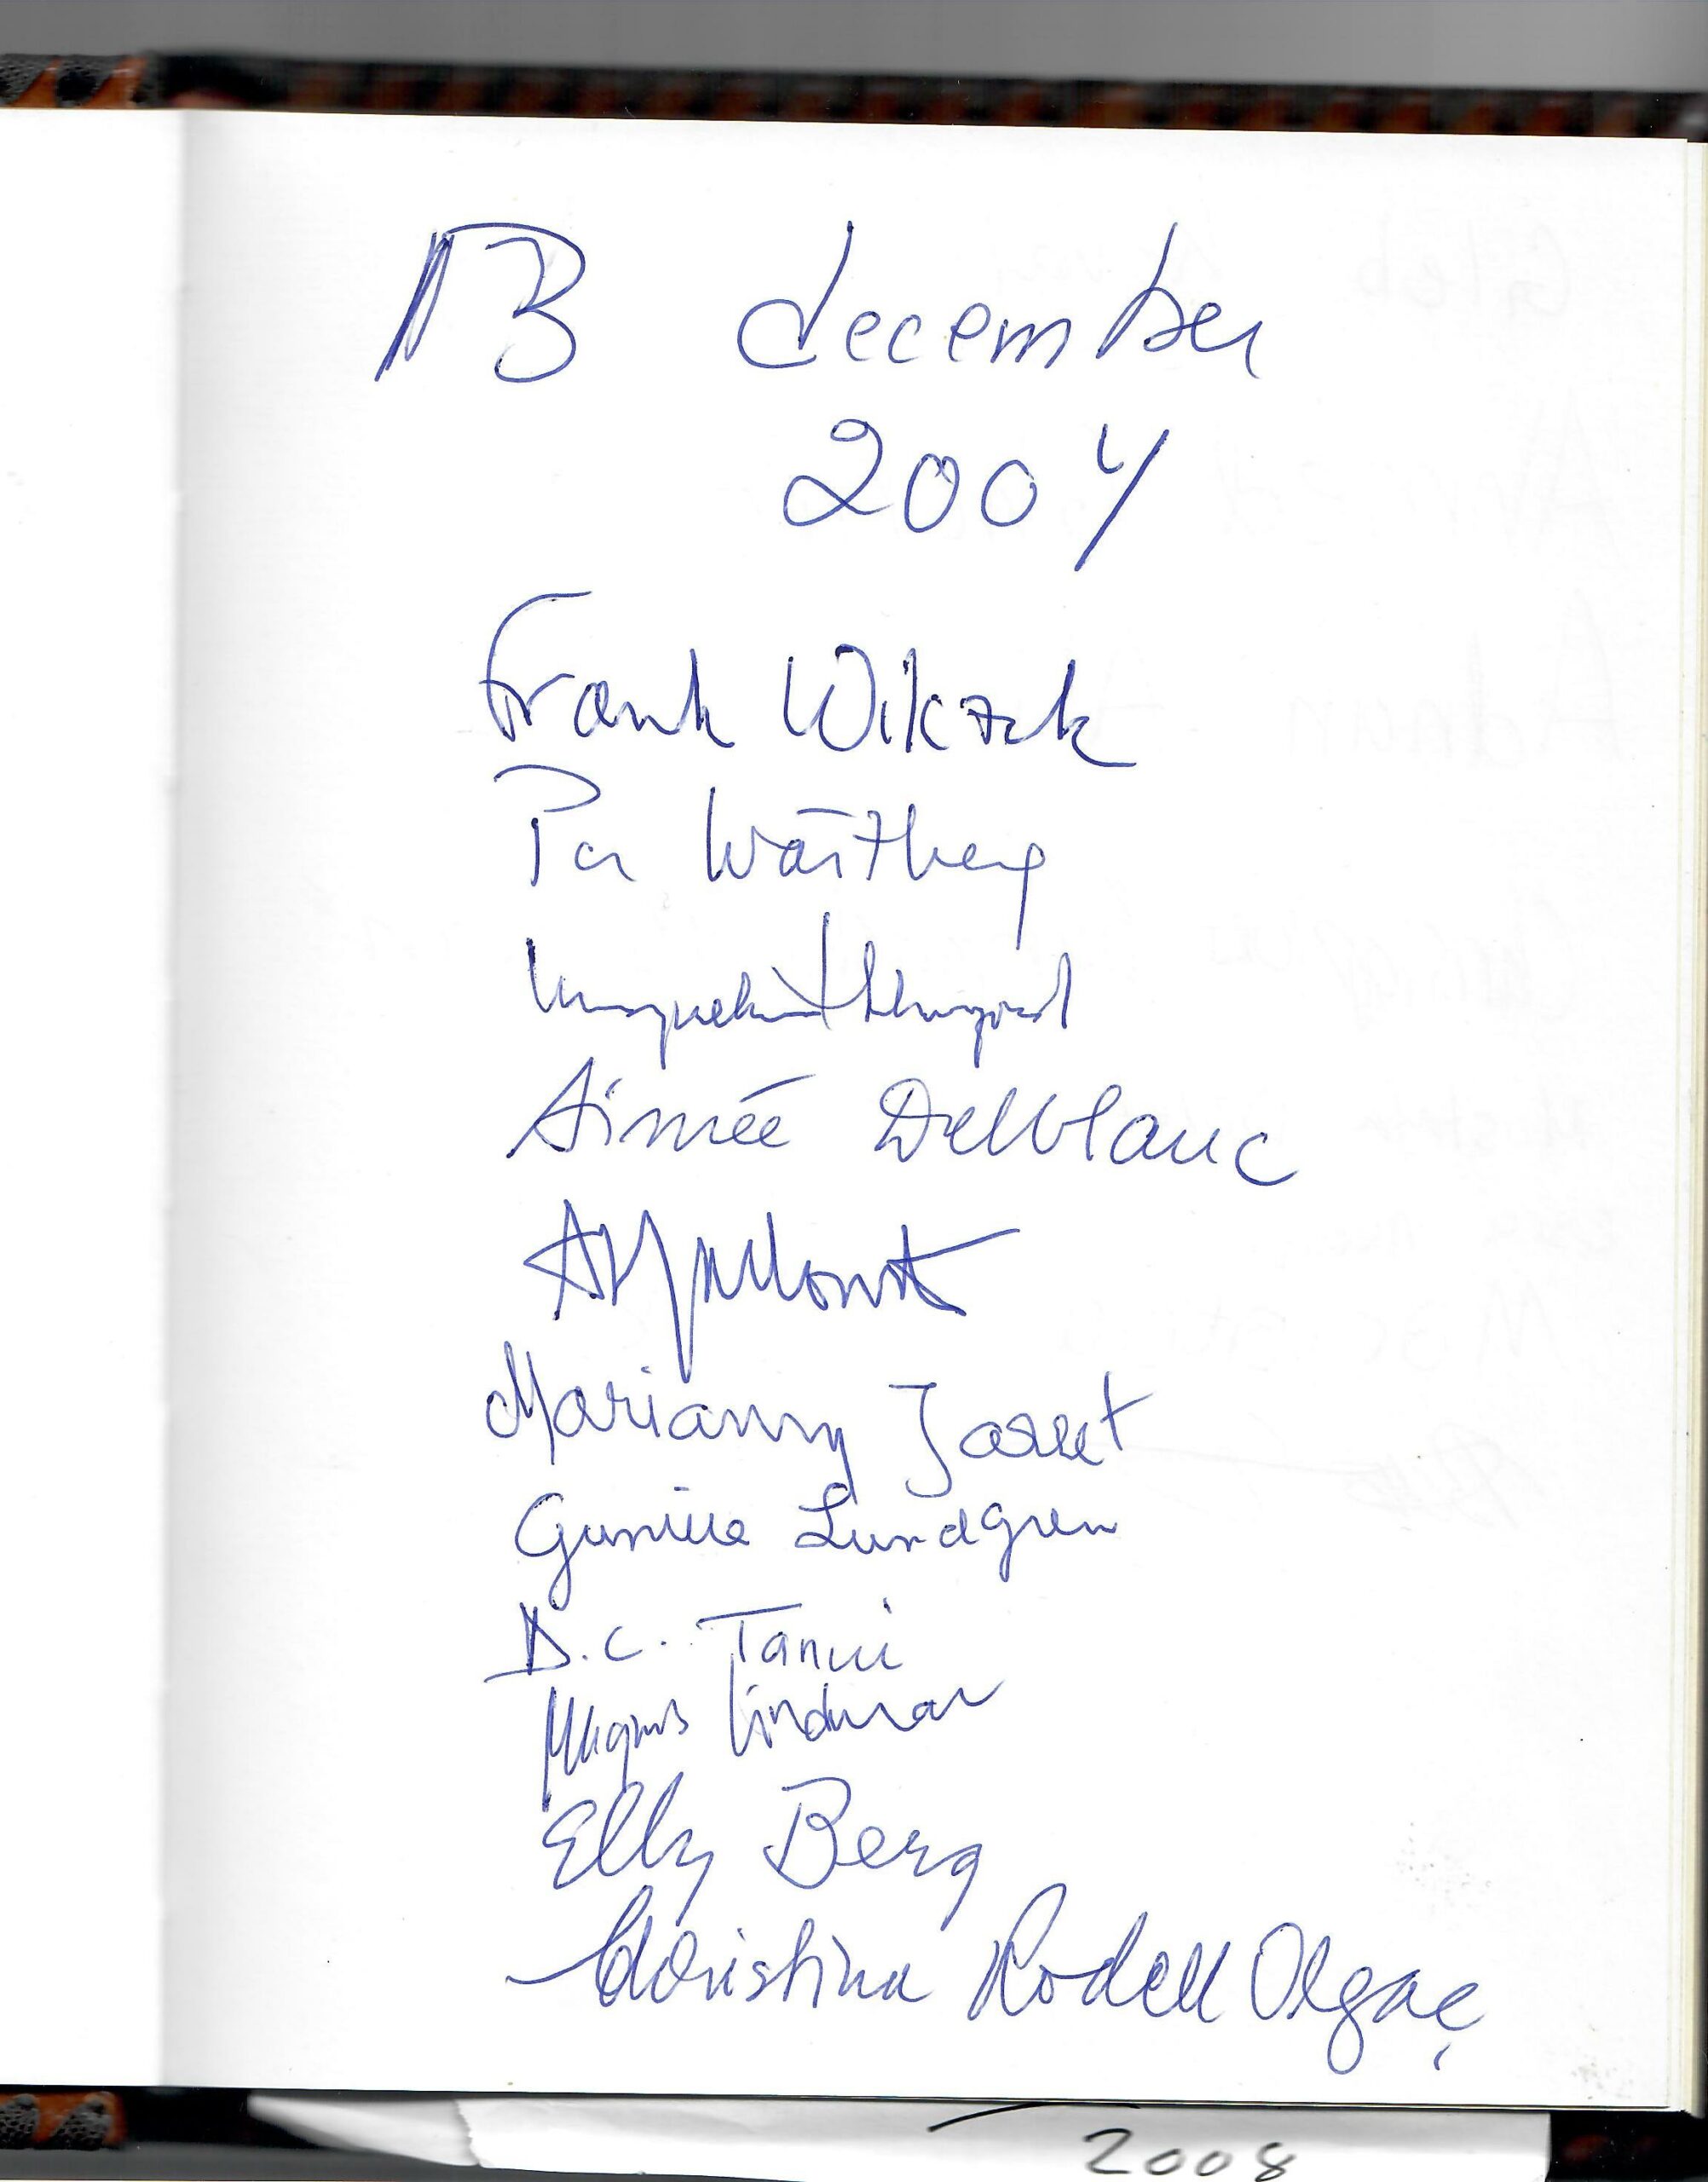 13 december
2004
Frank Wikzak
Per Wästberg
Aimée Delblanc
Marianny Jasset
Gunilla Lundgren
D.C. Tanui
Magnus Lindman
Elly Berg
Christina Rodell Olgaç
2008